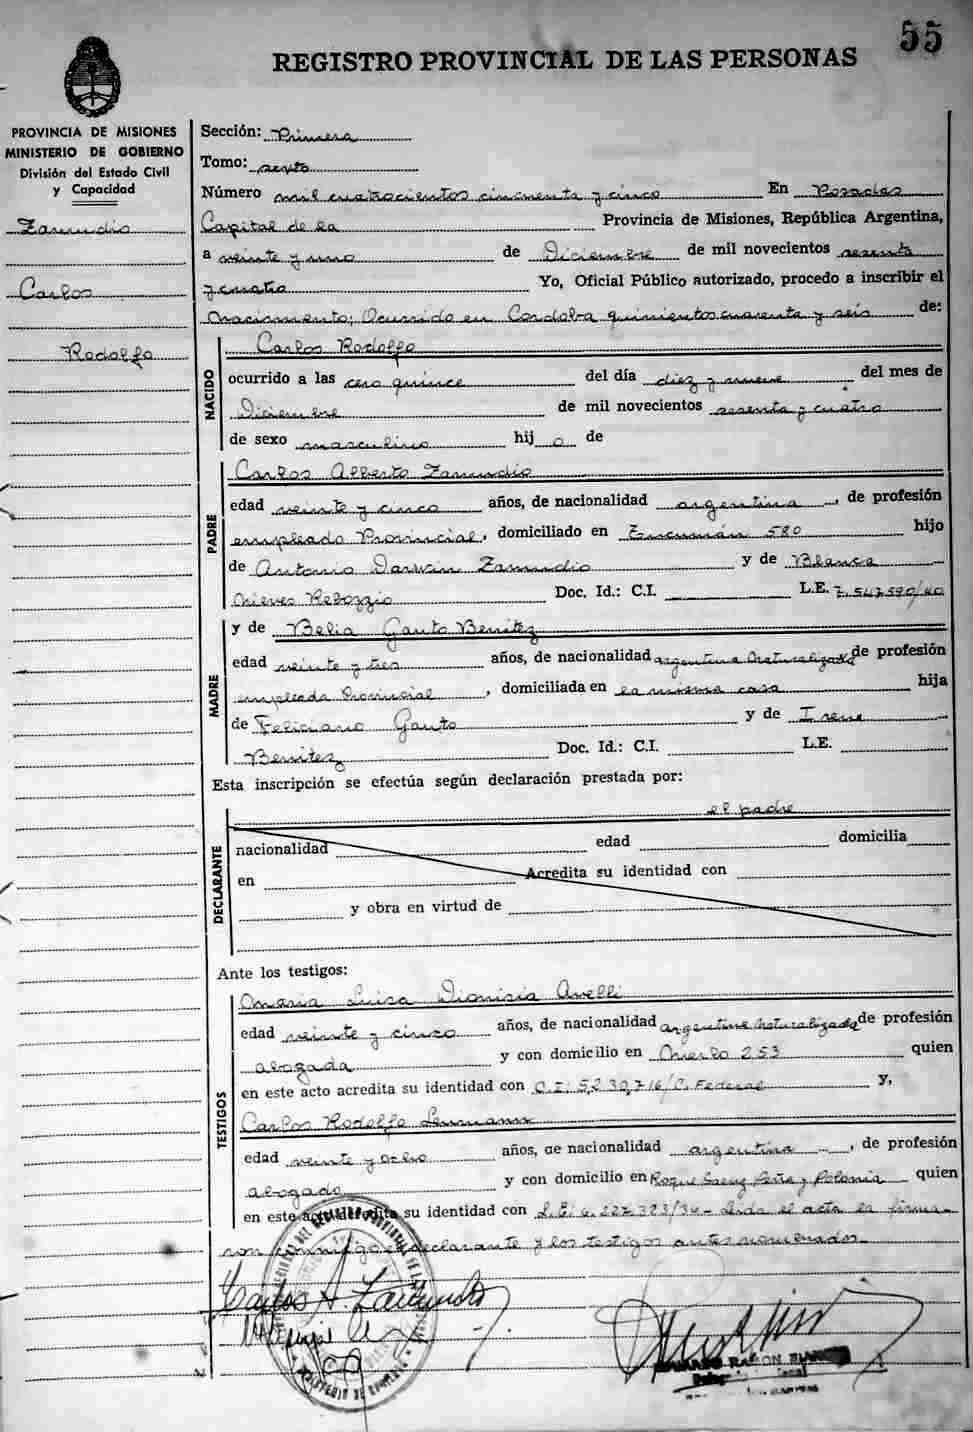 55
REGISTRO PROVINCIAL DE LAS PERSONAS
PROVINCIA DE MISIONES
MINISTERIO DE GOBIERNO
División del Estado Civil
y Capacidad
Zamudio
Carlos
Rodolfo
Sección: Primera
Tomo: sexto
Número mil cuatrocientos cincuenta y cinco En Posadas
Capital de la Provincia de Misiones, República Argentina,
a veinte y uno de Diciembre de mil novecientos sesenta
y cuatro Yo, Oficial Público autorizado, procedo a inscribir el
nacimiento; Ocurrido en Cordoba quinientos cuarenta y seis de:
NACIDO
Carlos Rodolfo
ocurrido a las cero quince del día diez y nueve del mes de
Diciembre de mil novecientos sesenta y cuatro
de sexo masculino hij o de
PADRE
Carlos Alberto Zamudio
edad veinte y cinco años, de nacionalidad argentina, de profesión
empleado Provincial, domiciliado en Tucumán 580 hijo
de Antonio Darwin Zamudio y de Blanca
Nieves Rebozzio Doc. Id.: C.I. L.E. 7.547.590/40
MADRE
y de Belia Gauto Benitez
edad veinte y tres años, de nacionalidad argentina naturalizada de profesión
empleada Provincial, domiciliada en la misma casa hija
de Feliciano Gauto y de Irene
Benitez Doc. Id.: C.I. L.E.
Esta inscripción se efectúa según declaración prestada por:
el padre
DECLARANTE
nacionalidad edad domicilia
en Acredita su identidad con
y obra en virtud de
Ante los testigos:
TESTIGOS
Maria Luisa Dionisia Avelli
edad veinte y cinco años, de nacionalidad argentina naturalizada de profesión
abogada y con domicilio en Merlo 253 quien
en este acto acredita su identidad con C.I: 5,230,716/C. Federal y,
Carlos Rodolfo
edad veinte y ocho años, de nacionalidad argentina, de profesión
abogado y con domicilio en Roque Saenz Peña y Polonia quien
en este acto acredita su identidad con L.E: 6.227.323/36 - Leida el acta la firma-
ron conmigo el declarante y los testigos antes nomenados.
Carlos A. Zamudio
RAMON